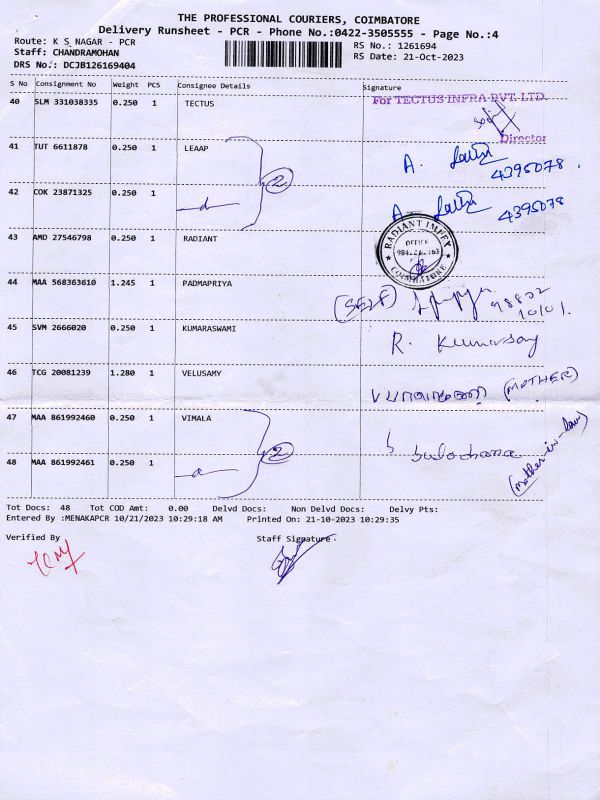 THE PROFESSIONAL COURIERS, COIMBATORE
Delivery Runsheet - PCR - Phone No.:0422-3505555 - Page No.:4
Route: K S NAGAR - PCR
RS No.: 1261694
Staff: CHANDRAMOHAN
RS Date: 21-Oct-2023
DRS No.: DCJB126169404
S No Consignment No Weight PCS Consignee Details Signature
40 SLM 331038335 0.250 1 TECTUS
For TECTUS INFRA PVT. LTD.
Director
41 TUT 6611878 0.250 1 LEAAP
A. 4395078.
2
42 COK 23871325 0.250 1
A 4395078
43 AMD 27546798 0.250 1 RADIANT
RADIANT IMPEX
OFFICE
COIMBATORE
44 MAA 568363610 1.245 1 PADMAPRIYA
(SELF) 98802
10101.
45 SVM 2666020 0.250 1 KUMARASWAMI
R.
46 TCG 20081239 1.280 1 VELUSAMY
(MOTHER)
47 MAA 861992460 0.250 1 VIMALA
2
S Sulochana
(mother-in-law)
48 MAA 861992461 0.250 1
Tot Docs: 48 Tot COD Amt: 0.00 Delvd Docs: Non Delvd Docs: Delvy Pts:
Entered By :MENAKAPCR 10/21/2023 10:29:18 AM Printed On: 21-10-2023 10:29:35
Verified By Staff Signature.